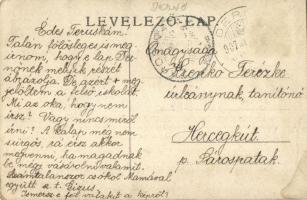 LEVELEZŐ-LAP
Édes Teruskám.
Talán fölösleges is meg-
írnom, hogy e lap De-
nőnek melyik részét
ábrázolja. De azért + meg-
jelöltem a felső iskolát.
Mi az oka, hogy nem
írsz? Vagy nincs miről
írni? A kalap még nem
sürgős, rá érsz akkor
megvenni, ha magadnak
be mégy vásárolni valamit.
Számtalanszor csókol Mamával
együtt sz. t.
Ismersz-e fel valakit a képről?
Őnagysága
Terézke
úrleánynak, tanítónő
Hercegkút.
p. Sárospatak.